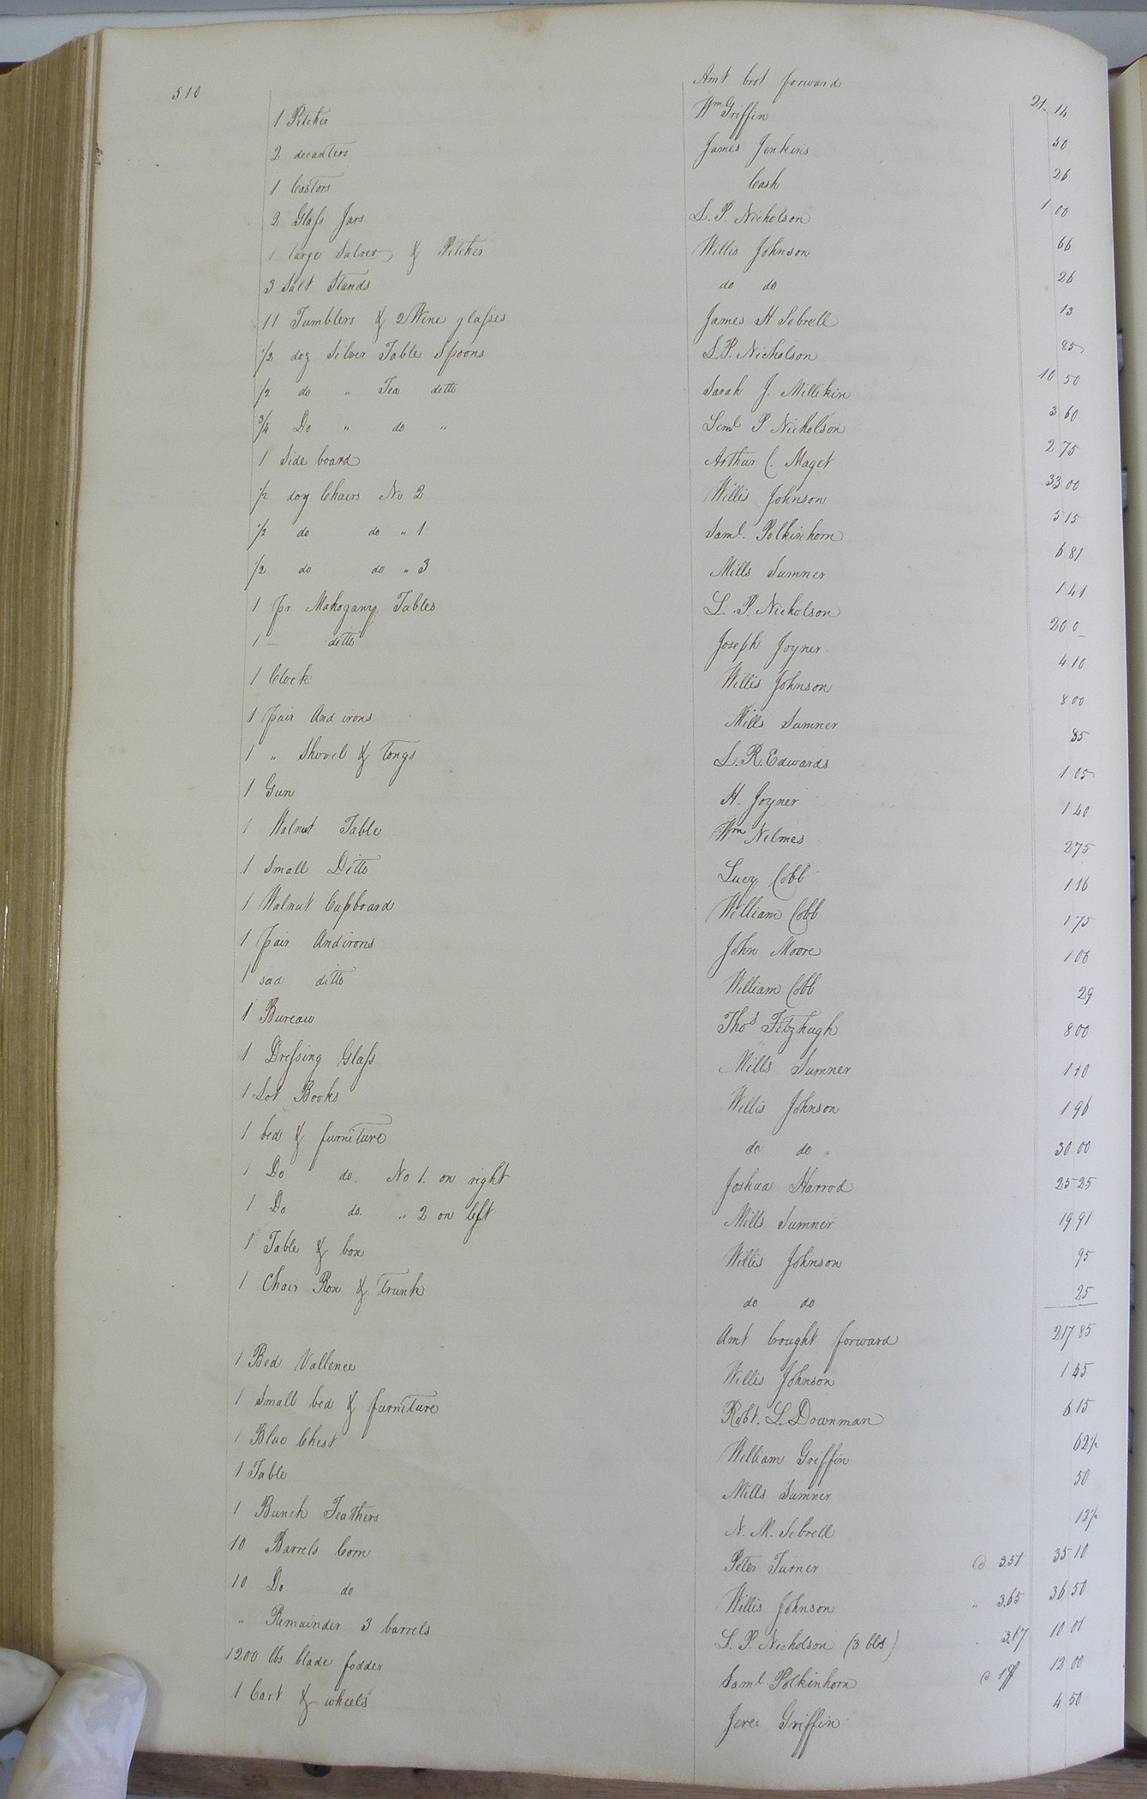 510
Amt brot forward 21.14
1 Pitcher Wm Griffin 50
2 decanters James Jenkins 26
1 Castors Cash 1 00
2 Glass Jars L. P. Nicholson 66
1 large Salver & Pitcher Willis Johnson 26
3 Salt Stands do do 13
11 Tumblers & 2 Wine glasses James H Sebrell 85
1/2 doz Silver Table Spoons L. P. Nicholson 10 50
1/2 do " Tea ditto Sarah J. Millikin 3 60
3/4 Do " do " Saml P Nicholson 2 75
1 Side board Arthur C. Maget 33 00
1/2 doz Chairs No 2 Willis Johnson 5 15
1/2 do do " 1 Saml. Polkinhorn 6 81
1/2 do do " 3 Mills Sumner 1 41
1 pr Mahogany Tables L. P. Nicholson 20 0
1 — ditto Joseph Joyner 4 10
1 Clock Willis Johnson 8 00
1 pair And irons Mills Sumner 85
1 " Shovel & Tongs L. R. Edwards 1 05
1 Gun H. Joyner 1 40
1 Walnut Table Wm Nelmes 2 75
1 Small Ditto Lucy Cobb 1 16
1 Walnut Cupboard William Cobb 1 75
1 pair Andirons John Moore 1 06
1 ditto William Cobb 29
1 Bureau Thos Fitzhugh 8 00
1 Dressing Glass Mills Sumner 1 10
1 Lot Books Willis Johnson 1 96
1 bed & furniture do do " 30 00
1 Do do. No 1. on right Joshua Harrod 25 25
1 Do do. " 2 on left Mills Sumner 19 91
1 Table & box Willis Johnson 95
1 Chair Box & Trunk do do 25
Amt bought forward 217 85
1 Bed Vallence Willis Johnson 1 45
1 Small bed & furniture Robt. L. Downman 6 15
1 Blue Chest William Griffin 62 1/2
1 Table Mills Sumner 50
1 Bunch Feathers N. M. Sebrell 12 1/2
10 Barrels Corn Peter Turner @ 3.51 35 10
10 Do do Willis Johnson " 3.65 36 50
" Remainder 3 barrels L. P. Nicholson (3 bbls) 3.17 10 01
1200 lbs blade fodder Saml. Polkinhorn @ 12 00
1 Cart & wheels Jere: Griffin 4 50